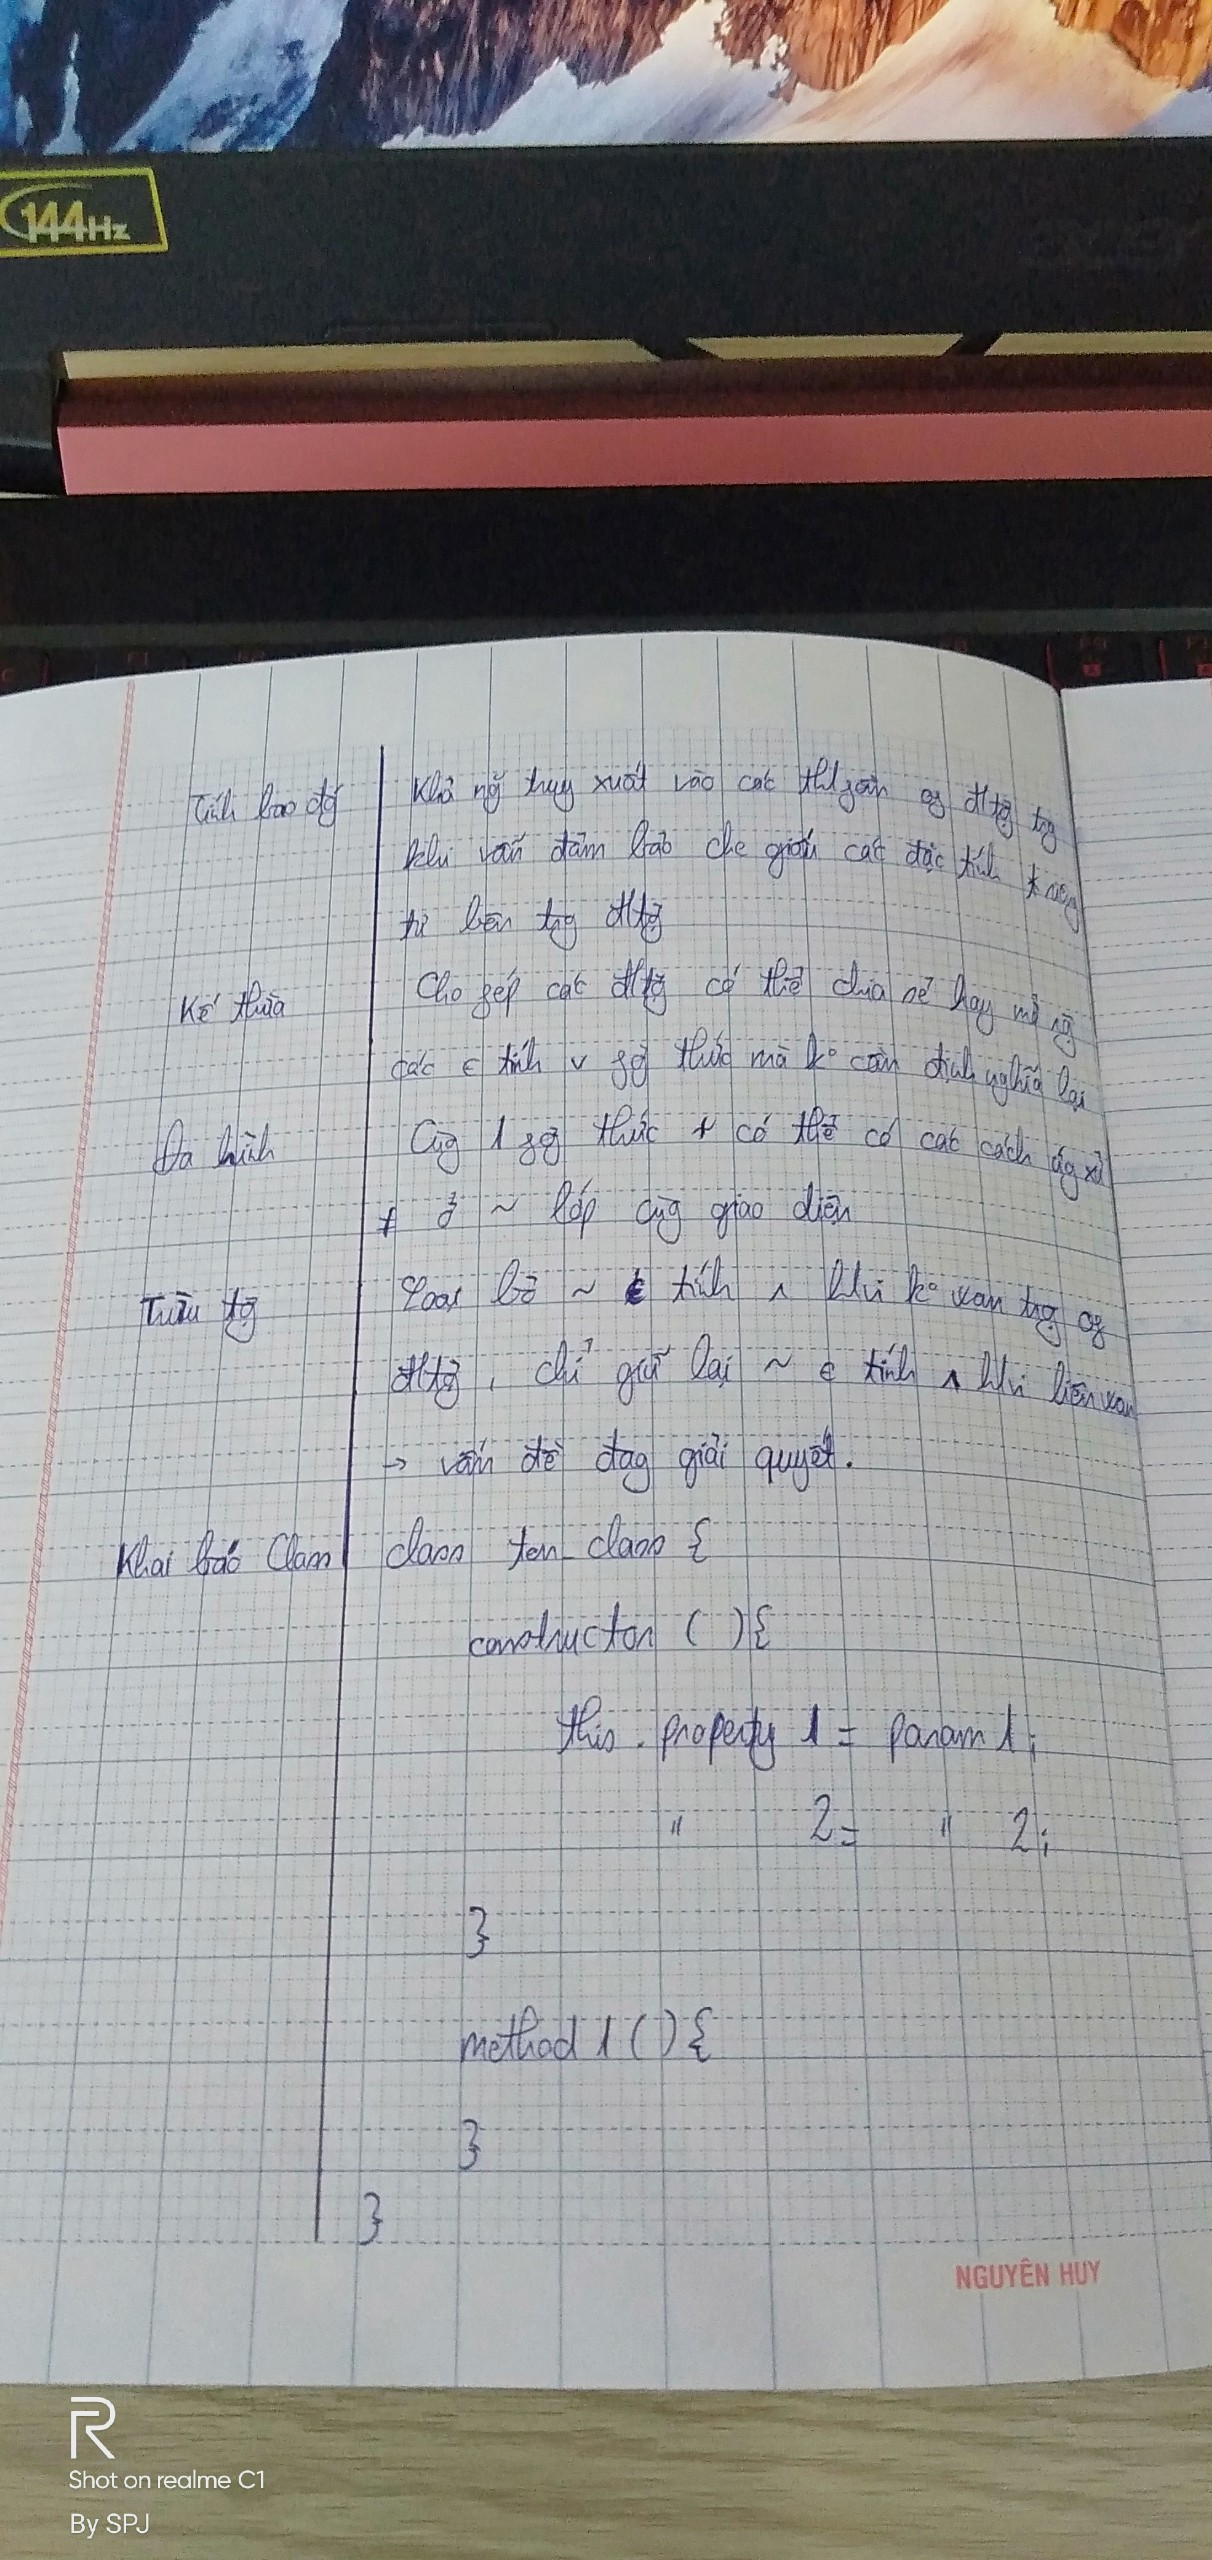 144Hz
Tính bao đó Khả nǧ truy xuất vào các của đtg trg
khi vẫn đảm bảo che giấu các đặc tính
từ bên trg đtg
Kế thừa Cho phép các đtg có thể chia sẻ hay mở rg
các € tính v fg thức mà ko cần định nghĩa lại
Đa hình Cùg 1 fg thức + có thể có các cách ứg xử
+ ở ~ lớp cùg giao diện
Trừu tg Loại bỏ ~ € tính ko wan trg
đtg, chỉ giữ lại ~ € tính liên wan
→ vấn đề đag giải quyết.
Khai báo Class class ten_class {
constructor ( ) {
this . property 1 = param 1 ;
" 2 = " 2 ;
}
method 1 ( ) {
}
}
NGUYÊN HUY
R
Shot on realme C1
By SPJ